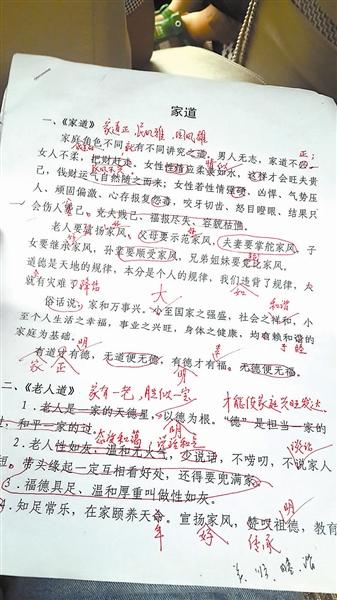 家道
一、《家道》 家道正
家庭角色不同，就有不同讲究之道。男人无志，家道不
女人不柔，把财赶走。女性性情应柔顺如水，这样才会旺夫贵
己，钱财运气自然随之而来；女性若性情 硬、凶悍、气势压
人、顽固偏激、心存报复怨毒、咬牙切齿、怒目瞪眼、结果只
会伤人害己。克夫贱己、福报尽失、容貌枯憔。
老人要 扬家风，父母要示范家风，夫妻要掌舵家风，子
女要继承家风，孙辈要顺受家风，兄弟姐妹要竞比家风。
道德是天地的规律，本分是个人的规律，我们违背了规律，
就有灾难 降临
大 和 和谐
俗话说，家和万事兴。小至国家之强盛，社会之祥和，小
至个人生活之幸福，事业之兴旺，身体之健康，均有赖和谐的
家庭为基础。 明
有道才有德，无道便无德，有德才有福。无德便无福。
家 正 明
二、《老人道》 家有一老，胜似一宝
1．老人是一家的天德星，以德为根。“德”是担当一家的
过，和平一家的过。
2．老人性如灰，温和无火气，少说话，不唠叨，不说家人
短。带头缘起一定互相看好处，还得要兜满家。
3．福德具足、温和厚重叫做性如灰。
4．知足常乐，在家颐养天命。宣扬家风，赞叹祖德，教育
年 传承